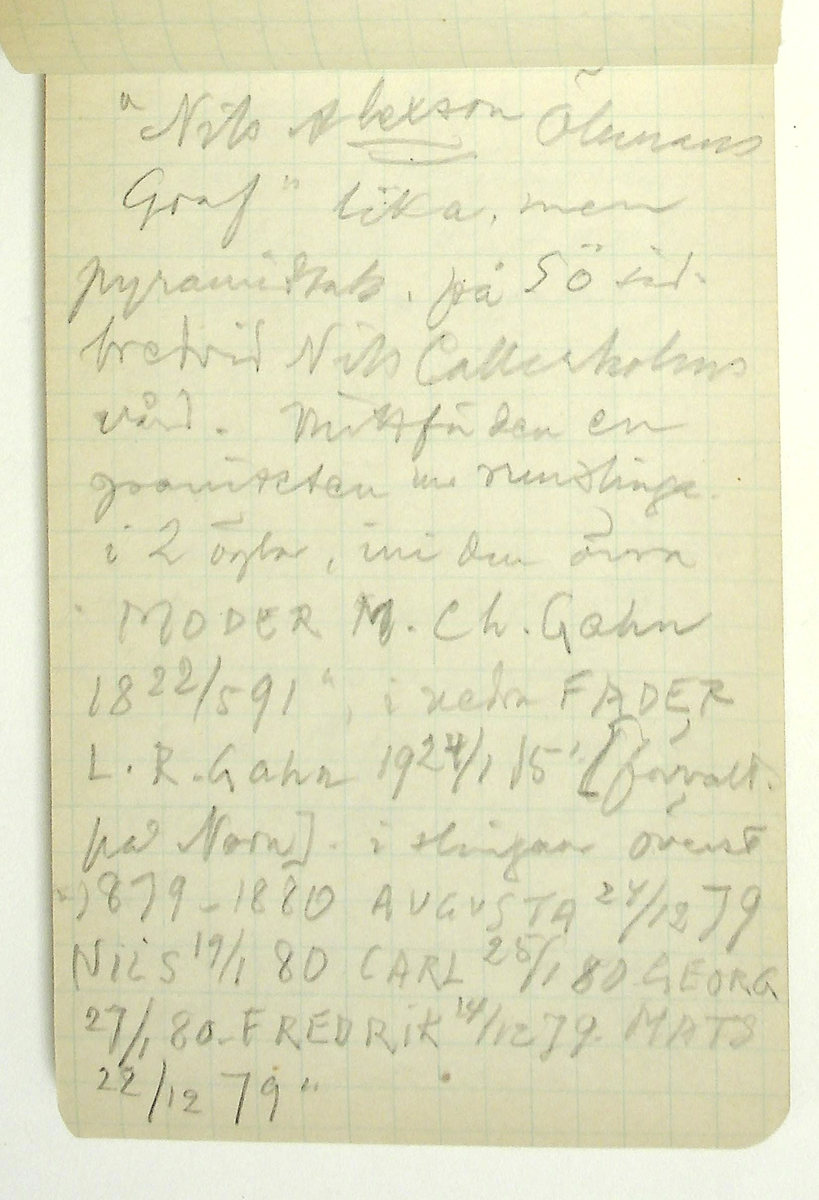 "Nils Alexson Öhmans
Graf" lika, men
pyramidtak, på SÖ sid.
bredvid Nils Callerholms
vård. Mitt för den en
granitsten m runslinga
i 2 öglor, i den övra
"MODER M. Ch. Gahn
18 22/5 91", i nedra FADER
L. R. Gahn 19 24/1 15" [förvalt.
på Norn]. i slingan överst
"1879-1880 AUGUSTA 24/12 79
NILS 19/1 80 CARL 25/1 80 GEORG
27/1 80 - FREDRIK 14/12 79. MATS
22/12 79"